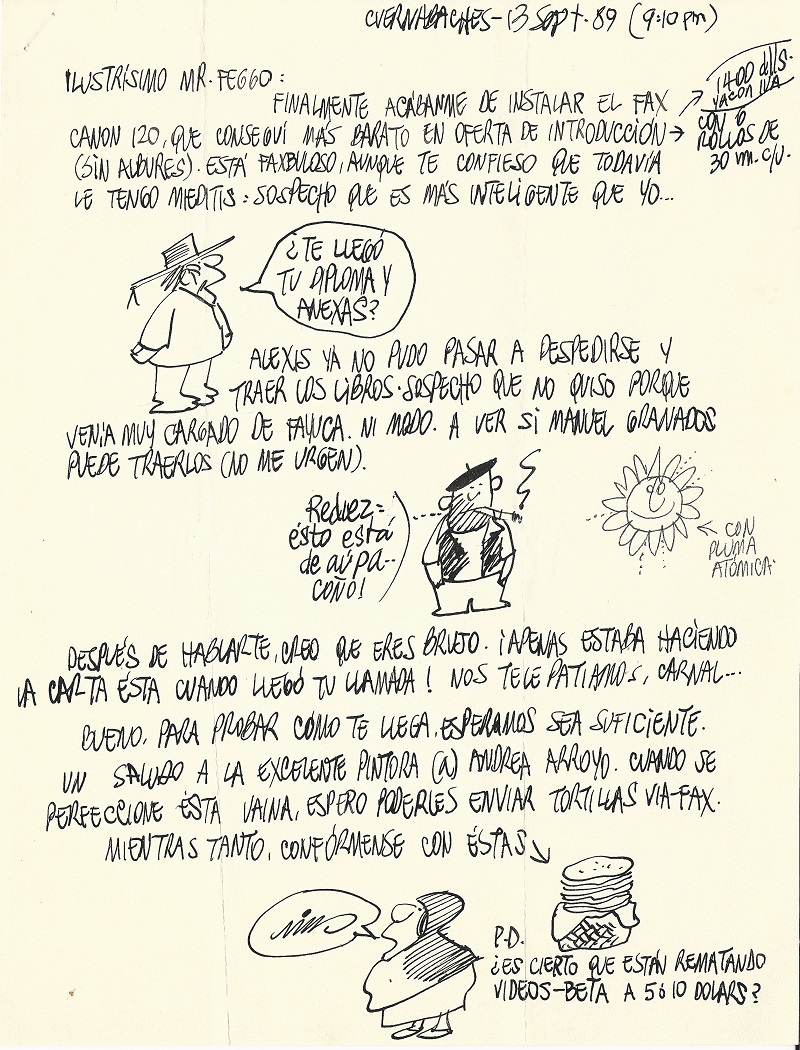 CUERNABACHES-13 Sept. 89 (9:10 pm)
ILUSTRÍSIMO MR. FEGGO:
FINALMENTE ACÁBANME DE INSTALAR EL FAX
CANON 120, QUE CONSEGUÍ MÁS BARATO EN OFERTA DE INTRODUCCIÓN→
(SIN ALBURES). ESTÁ FAXBULOSO, AUNQUE TE CONFIESO QUE TODAVÍA
LE TENGO MIEDITIS: SOSPECHO QUE ES MÁS INTELIGENTE QUE YO...
1400 dlls.
YA CON IVA
CON 6
ROLLOS DE
30 m. c/u.
¿TE LLEGÓ
TU DIPLOMA Y
ANEXAS?
ALEXIS YA NO PUDO PASAR A DESPEDIRSE Y
TRAER LOS LIBROS. SOSPECHO QUE NO QUISO PORQUE
VENÍA MUY CARGADO DE FAYUCA. NI MODO. A VER SI MANUEL GRANADOS
PUEDE TRAERLOS (NO ME URGEN).
Rediez=
ésto está
de aúpa--
COÑO!
← CON
PLUMA
ATÓMICA
DESPUÉS DE HABLARTE, CREO QUE ERES BRUJO. ¡APENAS ESTABA HACIENDO
LA CARTA ÉSTA CUANDO LLEGÓ TU LLAMADA! NOS TELEPATIAMOS, CARNAL...
BUENO, PARA PROBAR CÓMO TE LLEGA, ESPERAMOS SEA SUFICIENTE.
UN SALUDO A LA EXCELENTE PINTORA (A) ANDREA ARROYO. CUANDO SE
PERFECCIONE ÉSTA VAINA, ESPERO PODERLES ENVIAR TORTILLAS VIA-FAX.
MIENTRAS TANTO, CONFÓRMENSE CON ÉSTAS
P.D.
¿ES CIERTO QUE ESTÁN REMATANDO
VIDEOS-BETA A 5 ó 10 DOLARS?